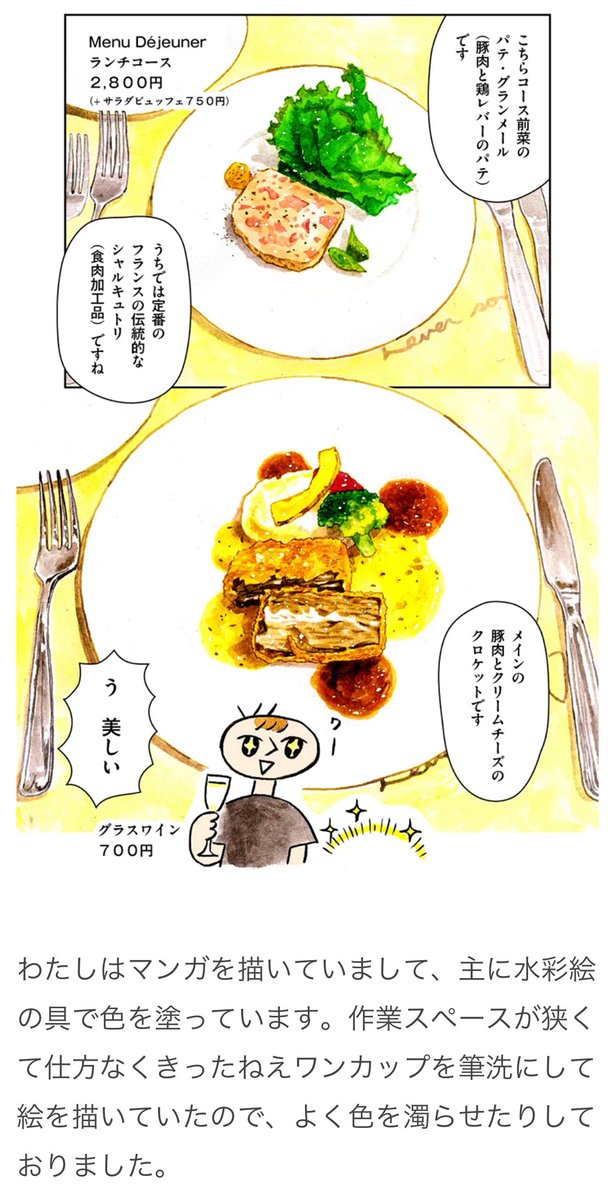 Menu Déjeuner
ランチコース
2,800円
(+サラダビュッフェ750円)
こちらコース前菜の
パテ・グランメール
(豚肉と鶏レバーのパテ)
です
うちでは定番の
フランスの伝統的な
シャルキュトリ
(食肉加工品)ですね
メインの
豚肉とクリームチーズの
クロケットです
う 美しい
ワー
グラスワイン
700円
わたしはマンガを描いていまして、主に水彩絵
の具で色を塗っています。作業スペースが狭く
て仕方なくきったねえワンカップを筆洗にして
絵を描いていたので、よく色を濁らせたりして
おりました。